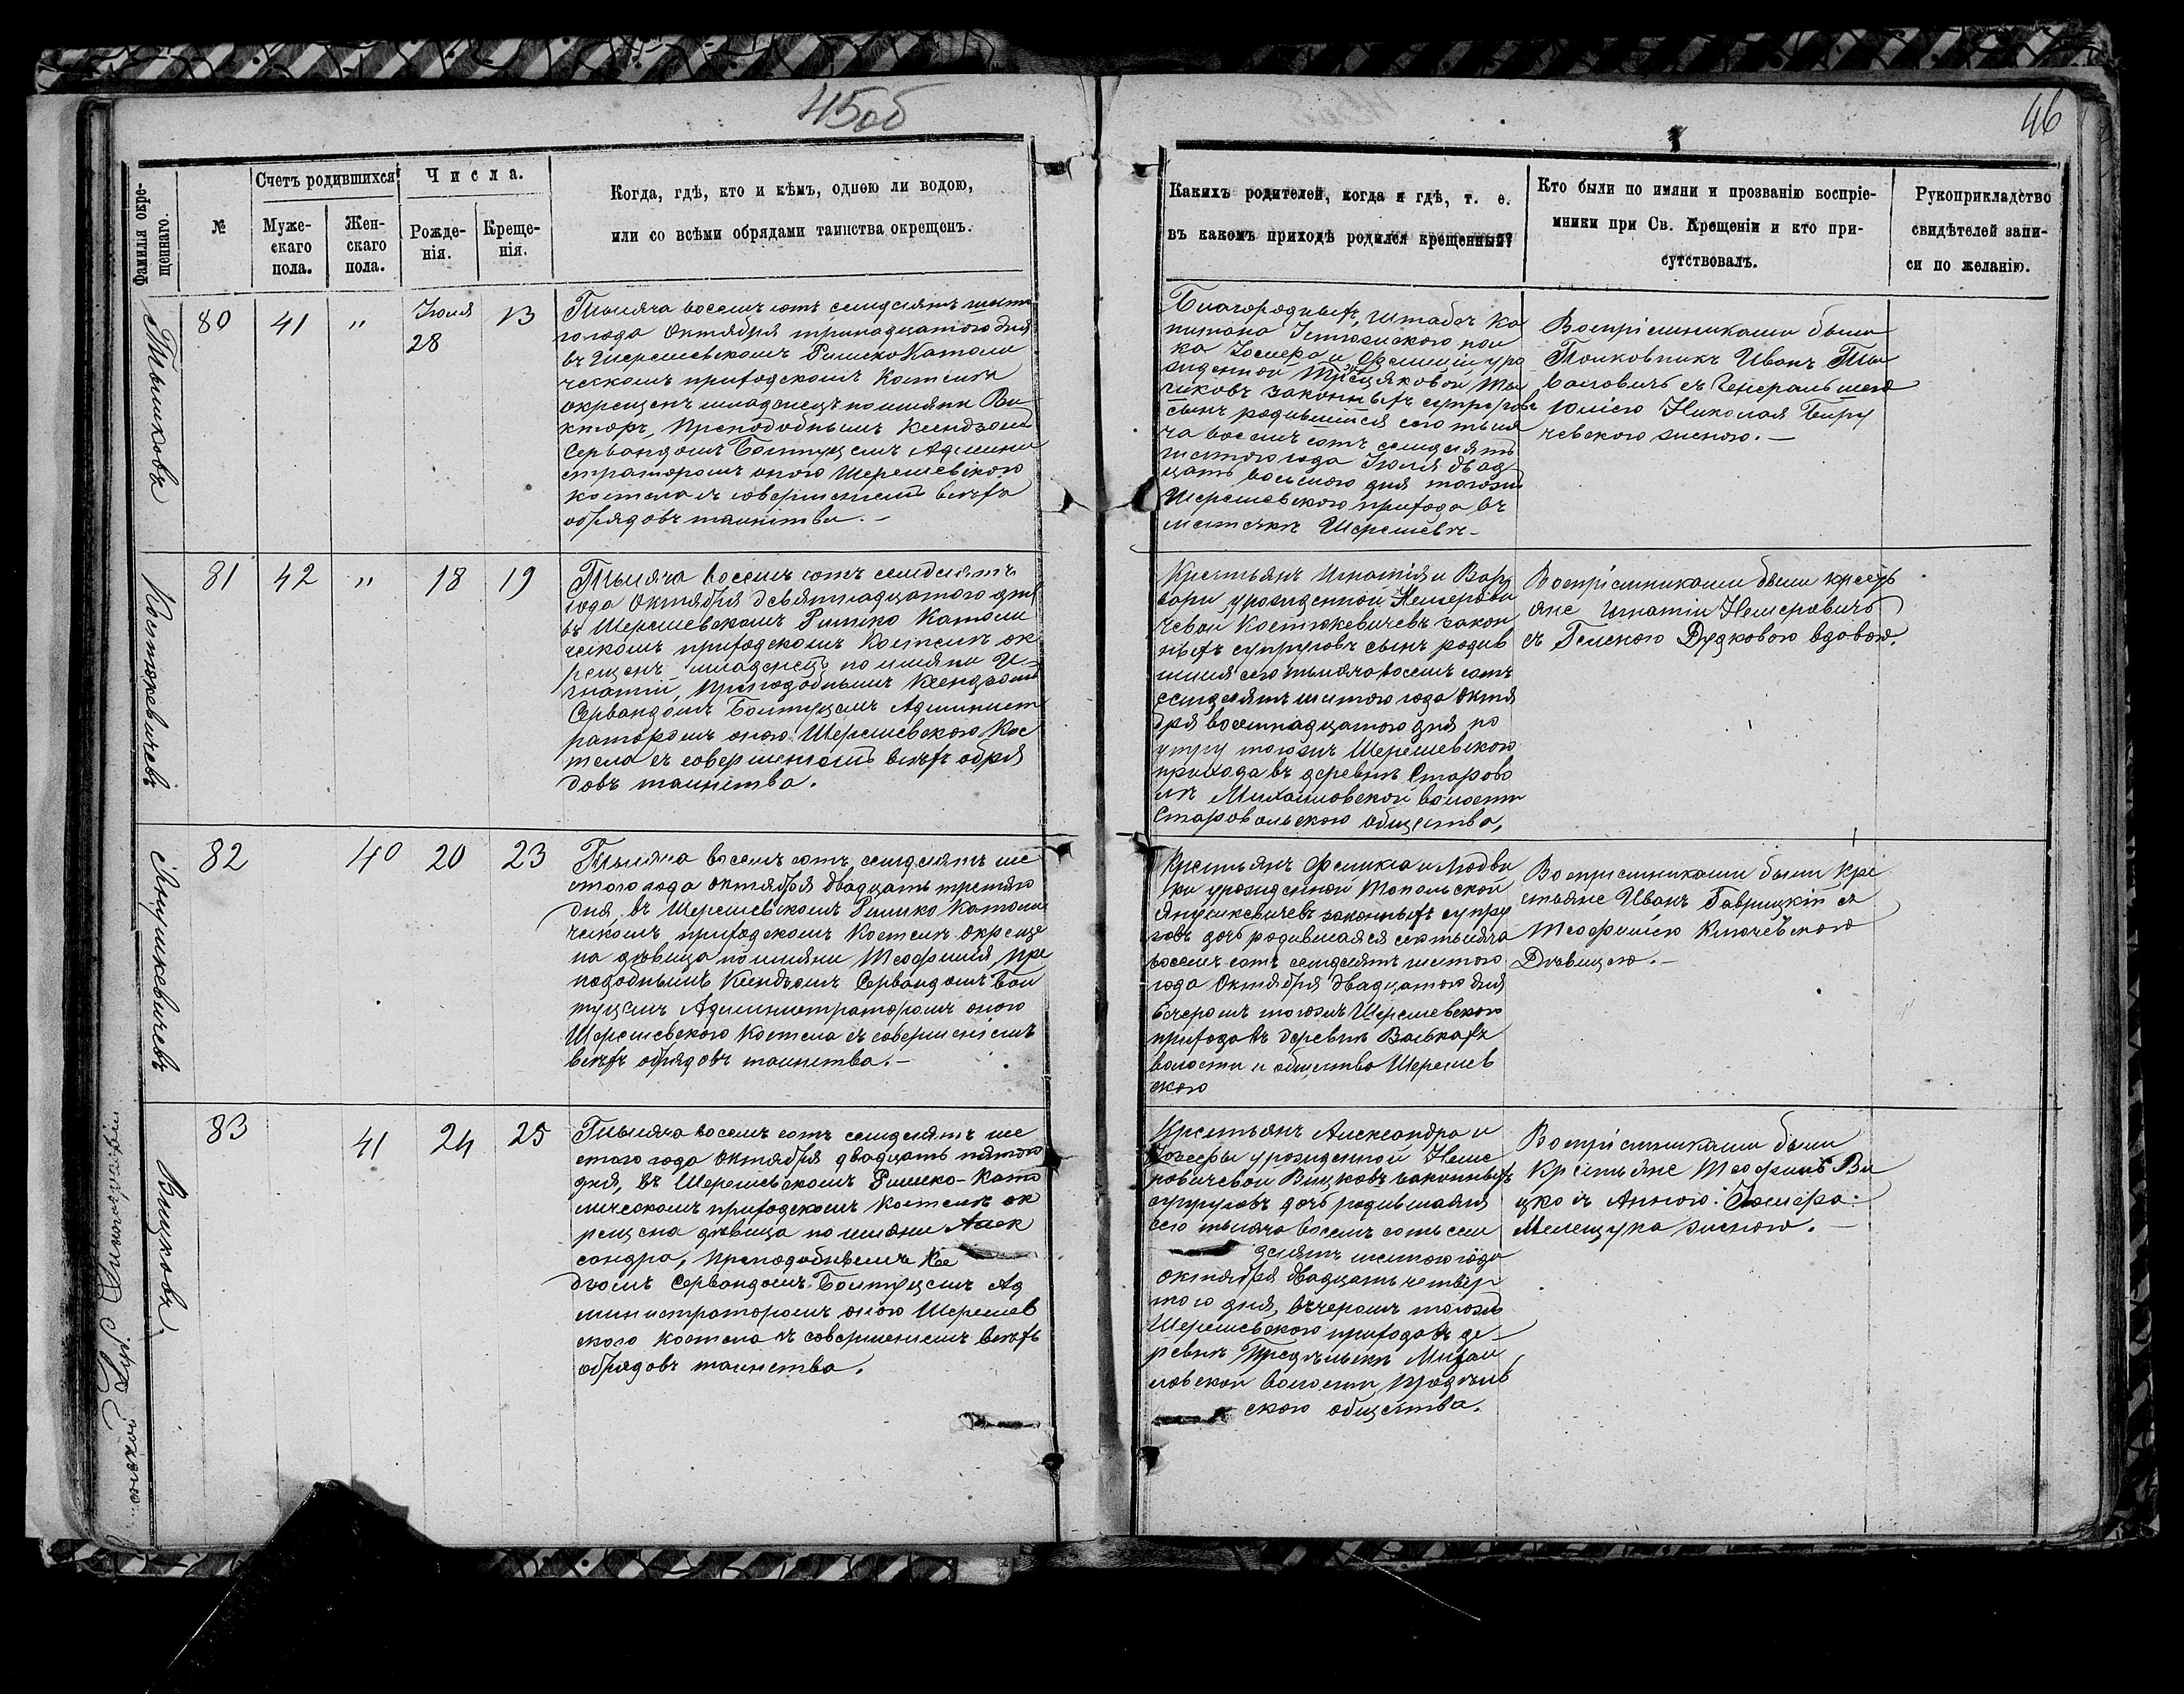 45об
46
Фамилія окре-
щеннаго.
№
Счетъ родившихся
Муже-
скаго
пола.
Жен-
скаго
пола.
Числа.
Рожде-
нія.
Креще-
нія.
Когда, гдѣ, кто и кѣмъ, одною ли водою,
или со всѣми обрядами таинства окрещенъ.
Какихъ родителей, когда и гдѣ, т. е.
въ какомъ приходѣ родился крещенный?
Кто были по имяни и прозванію воспріе-
мники при Св. Крещеніи и кто при-
сутствовалъ.
Рукоприкладство
свидѣтелей запи-
си по желанію.
80
41
"
Іюля
28
13
Тысяча восемь сотъ семдесятъ шесто
го года Октября тринадцатого дня
въ Шерешевскомъ Римско Католи
ческомъ приходскомъ Костелѣ
окрещенъ младенецъ по имяни Ви
кторъ, Преподобнымъ Ксендзомъ
Сервандомъ Болтуцемъ Админи
страторомъ оного Шерешевского
костела съ совершеніемъ всѣхъ
обрядовъ таинства.-
Благородныхъ, Штабсъ Ка
питана пол
ка Іосифа и уро
жденной
законныхъ супруговъ
сынъ родившійся сего тыся
ча восемь сотъ семдесятъ
шестого года Іюля двад
цать восьмого дня тогожъ
Шерешевского прихода въ
мѣстечкѣ Шерешевѣ-
Воспріемниками были
Полковникъ Иванъ
съ Генеральшею
Юліею Николая
женою.-
81
42
"
18
19
Костюкевичевъ
Тысяча восемь сотъ семдесятъ
года Октября девятнадцатого дня
въ Шерешевскомъ Римско Католи
ческомъ приходскомъ Костелѣ ок
рещенъ младенецъ по имяни И-
гнатій, Преподобнымъ Ксендзомъ
Сервандомъ Болтуцемъ Админист
раторомъ оного Шерешевского Кос
тела съ совершеніемъ всѣхъ обря
довъ таинства.
Крестьянъ Игнатія и Вар
вары урожденной Немерови
чевой Костюкевичевъ закон
ныхъ супруговъ сынъ родив
шійся сего тысяча восемь сотъ
семдесятъ шестого года Октя
бря восемнадцатого дня по
утру тогожъ Шерешевского
прихода въ деревнѣ Старово
лѣ Михайловской волости
Старовольского общества,
Воспріемниками были кресть
яне Игнатій Немеровичъ
съ Еленою Дудковою вдовою.
82
40
20
23
Янушкевичевъ
Тысяча восемь сотъ семдесятъ ше
стого года Октября двадцать третяго
дня, въ Шерешевскомъ Римско Католи
ческомъ приходскомъ Костелѣ окреще
на дѣвица по имяни Теофилія Пре
подобнымъ Ксендзомъ Сервандомъ Бол
туцемъ Администраторомъ оного
Шерешевского Костела съ совершеніемъ
всѣхъ обрядовъ таинства.-
Крестьянъ Феликса и Людви
ки урожденной Топольской
Янушкевичевъ законныхъ супру
говъ дочь родившаяся сего тысяча
восемь сотъ семдесятъ шестого
года Октября двадцатого дня
вечеромъ тогожъ Шерешевского
прихода въ деревнѣ Васькахъ
волости и общества Шерешев
ского
Воспріемниками были кре
стьяне Иванъ Гаврицкій съ
Теофиліею Ключевскою
Дѣвицею.-
83
41
24
25
Вицковъ
Тысяча восемь сотъ семдесятъ ше
стого года Октября двадцать пятого
дня, въ Шерешевскомъ Римско-Като
лическомъ приходскомъ Костелѣ ок
рещена дѣвица по имяни Алек
сандра, Преподобнымъ Ксе
дзомъ Сервандомъ Болтуцемъ Ад
министраторомъ оного Шерешев
ского костела съ совершеніемъ всѣхъ
обрядовъ таинства.
Крестьянъ Александра и
Іозефы урожденной Неме
ровичевой Вицковъ законныхъ
супруговъ дочь родившаяся
сего тысяча восемь сотъ сем
десятъ шестого года
октября двадцать четвер
того дня, вечеромъ тогожъ
Шерешевского прихода въ де-
ревнѣ Михай
ловской волости
ского общества.
Воспріемниками были
Крестьяне Теофиль Ви
цко съ Анною Іосифа
Мелещука женою.-